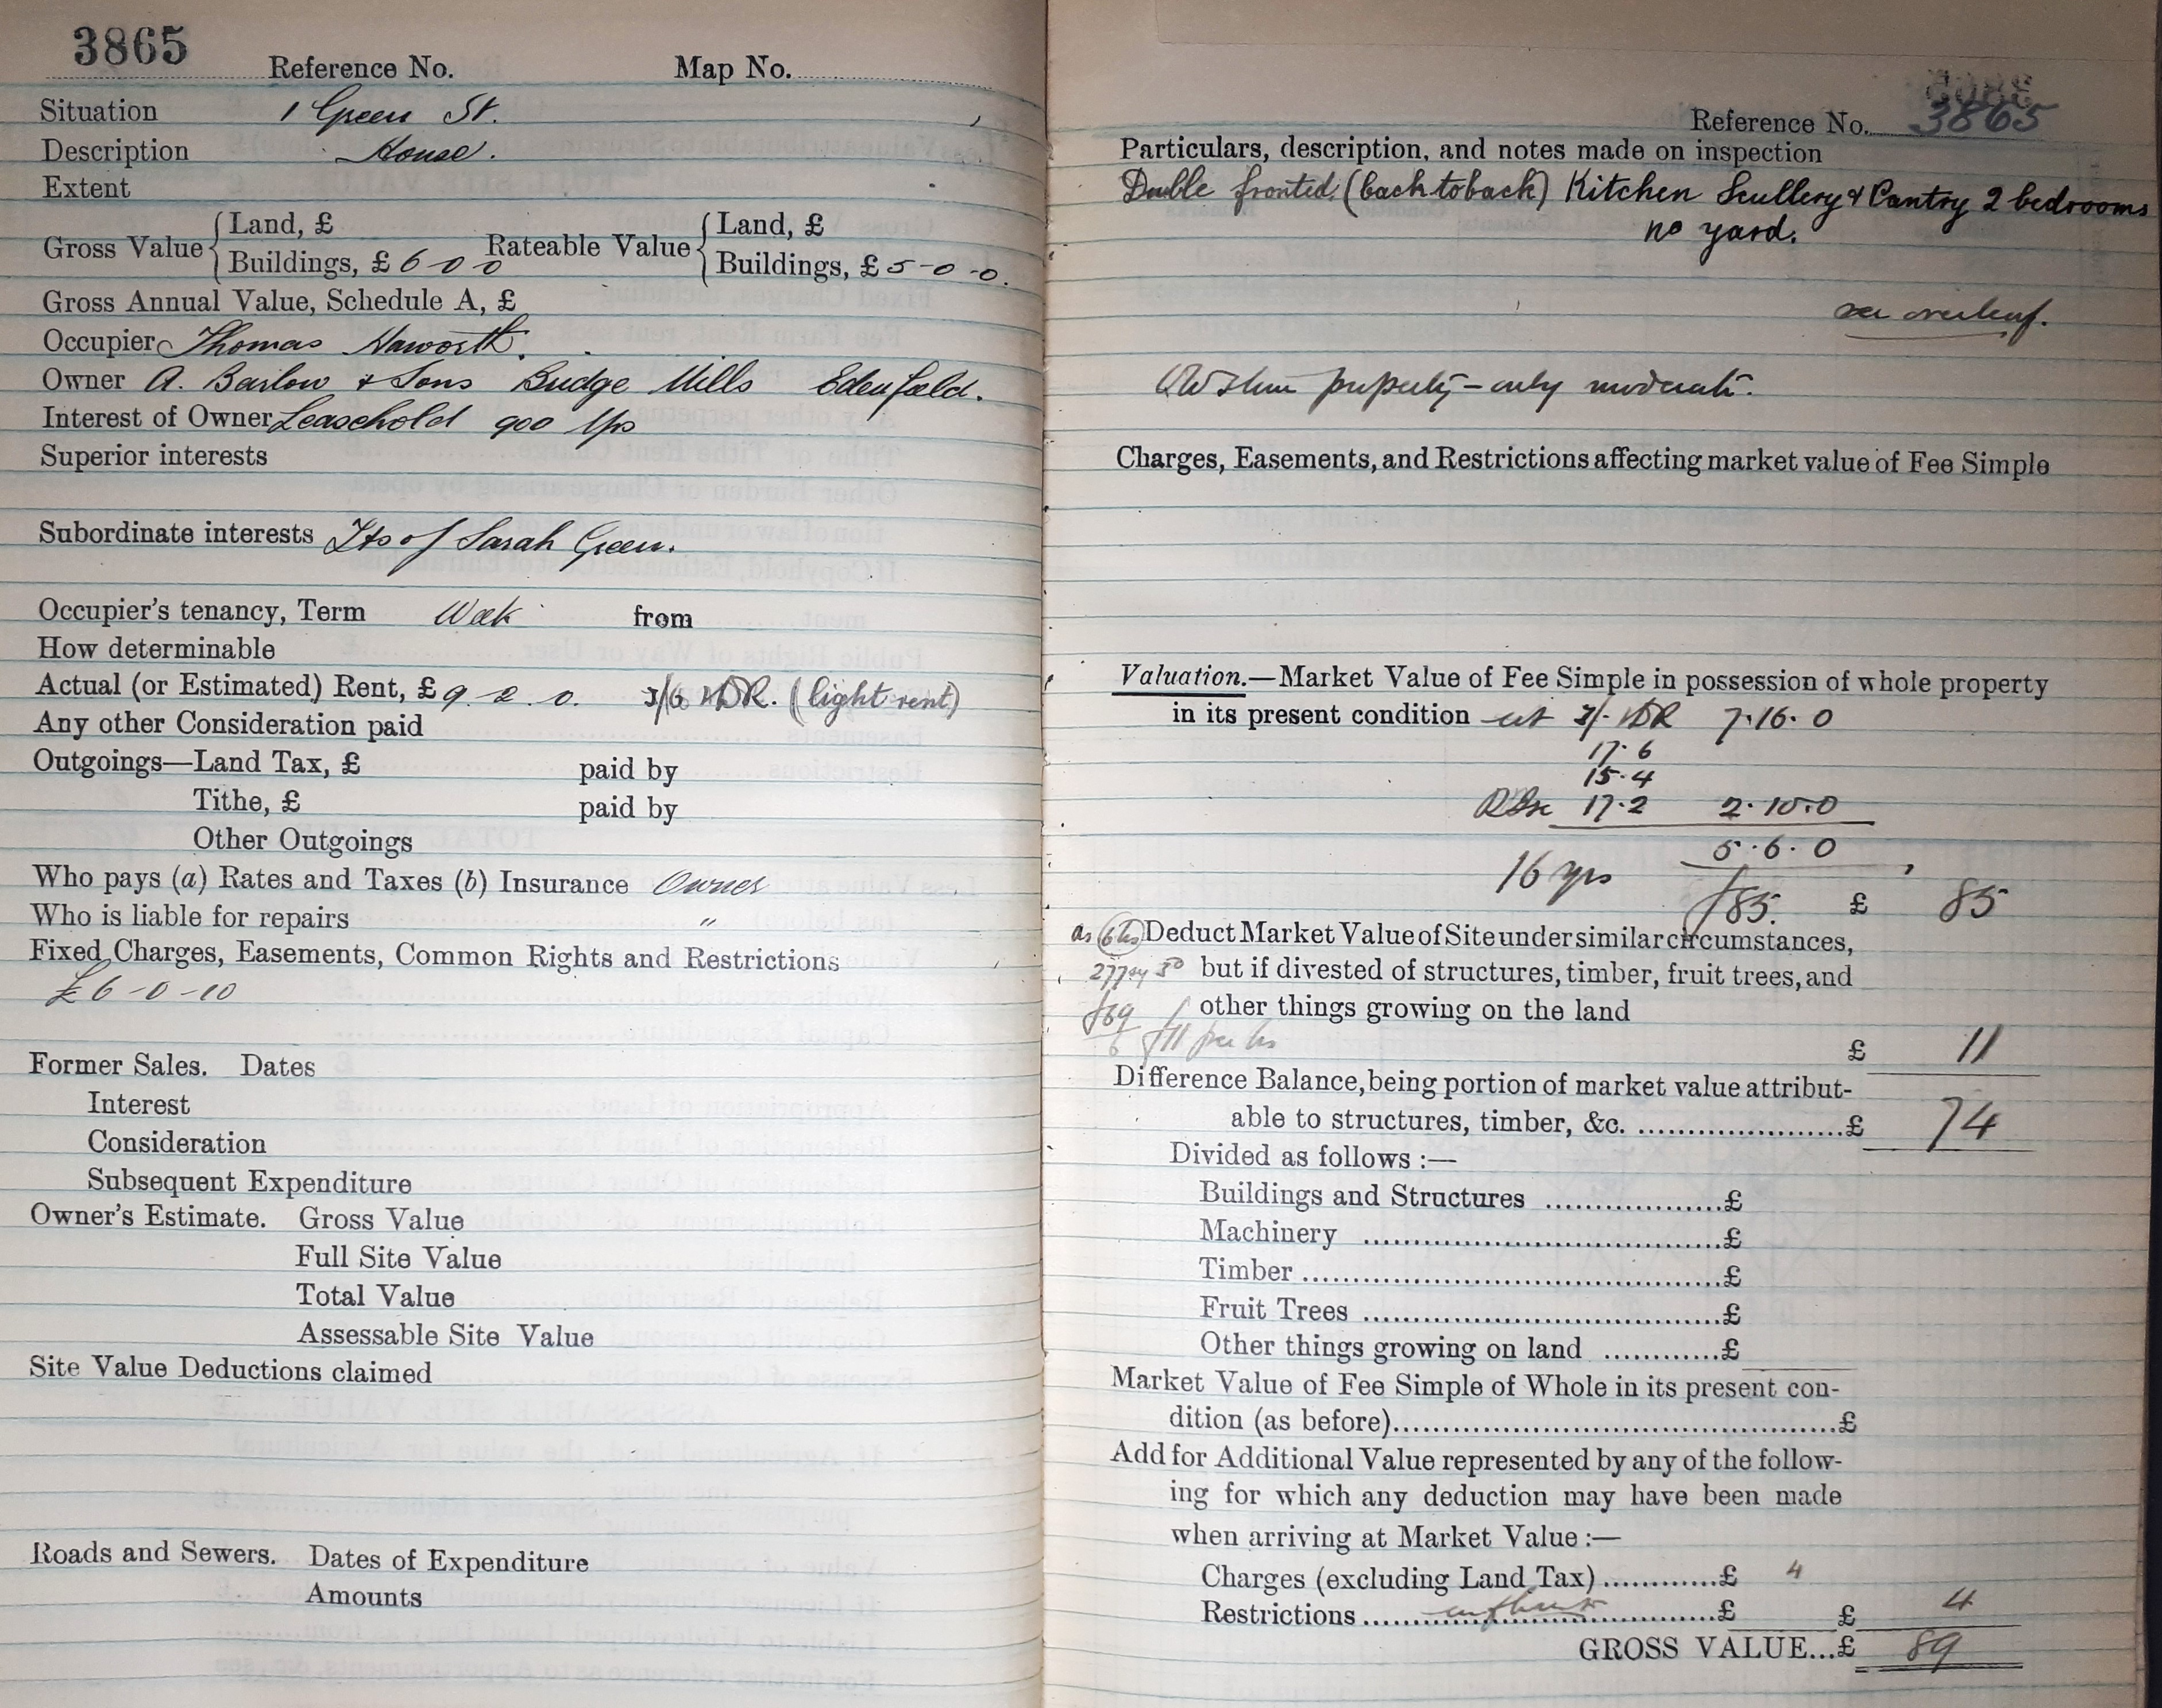 3865 Reference No. Map No.
Situation 1 Green St.
Description House.
Extent
Gross Value { Land, £ Rateable Value { Land, £
Buildings, £ 6-0-0 Buildings, £ 5-0-0.
Gross Annual Value, Schedule A, £
Occupier Thomas Haworth.
Owner A. Barlow & Sons Bridge Mills Edenfield.
Interest of Owner Leasehold 900 yrs
Superior interests
Subordinate interests Exs of Sarah Green.
Occupier's tenancy, Term Week from
How determinable
Actual (or Estimated) Rent, £ 9. 2. 0. 3/6 (light rent)
Any other Consideration paid
Outgoings—Land Tax, £ paid by
Tithe, £ paid by
Other Outgoings
Who pays (a) Rates and Taxes (b) Insurance Owner
Who is liable for repairs "
Fixed Charges, Easements, Common Rights and Restrictions
£6-0-10
Former Sales. Dates
Interest
Consideration
Subsequent Expenditure
Owner's Estimate. Gross Value
Full Site Value
Total Value
Assessable Site Value
Site Value Deductions claimed
Roads and Sewers. Dates of Expenditure
Amounts
Reference No. 3865
Particulars, description, and notes made on inspection
Double fronted. (back to back) Kitchen Scullery & Pantry 2 bedrooms
no yard.
see overleaf.
Old stone property - only moderate.
Charges, Easements, and Restrictions affecting market value of Fee Simple
Valuation.—Market Value of Fee Simple in possession of whole property
in its present condition at 3/- 7.16.0
17.6
15.4
17.2 2.10.0
5.6.0
16 yrs
£85. £ 85
as 6 hs Deduct Market Value of Site under similar circumstances,
277 sy 5/- but if divested of structures, timber, fruit trees, and
£69 other things growing on the land
6 £11 per hs
£ 11
Difference Balance, being portion of market value attribut-
able to structures, timber, &c. £ 74
Divided as follows :—
Buildings and Structures £
Machinery £
Timber £
Fruit Trees £
Other things growing on land £
Market Value of Fee Simple of Whole in its present con-
dition (as before) £
Add for Additional Value represented by any of the follow-
ing for which any deduction may have been made
when arriving at Market Value :—
Charges (excluding Land Tax) £ 4
Restrictions £ £ 4
GROSS VALUE...£ 89